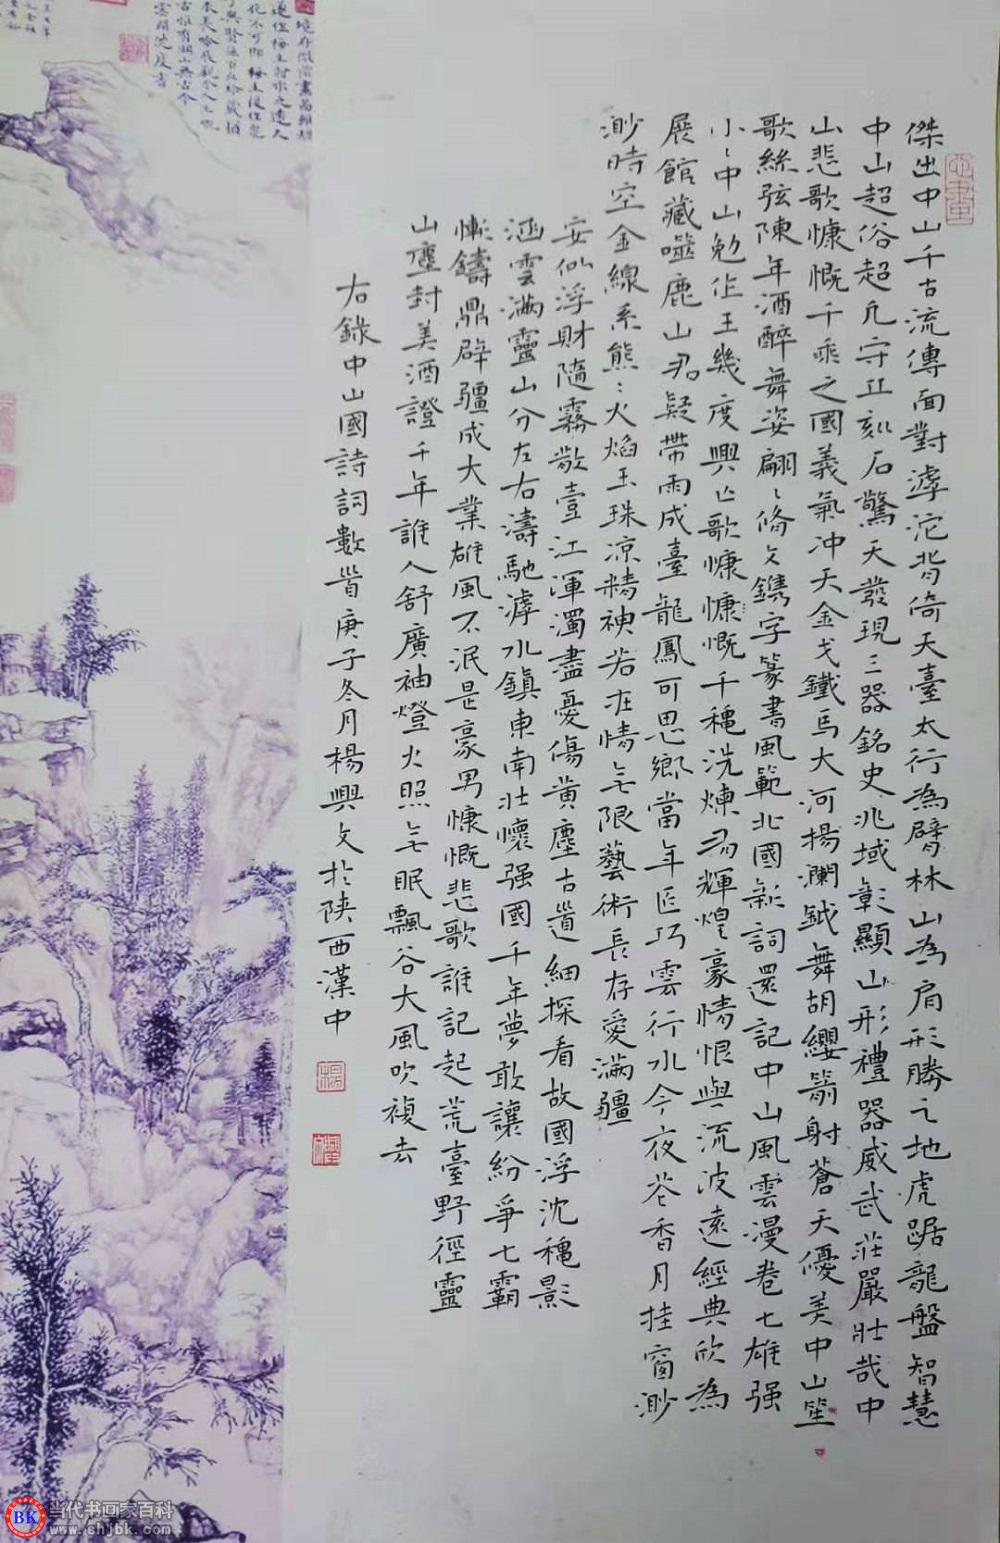 傑出中山千古流傳面對滹沱背倚天臺太行為臂林山為肩形勝之地虎踞龍盤智慧
中山超俗超凡守丘刻石驚天發現三器銘史兆域彰顯山形禮器威武莊嚴壯哉中
山悲歌慷慨千乘之國義氣冲天金戈鐵馬大河揚瀾鉞舞胡纓箭射蒼天優美中山笙
歌絲弦陳年酒醉舞姿翩〻脩文鐫字篆書風範北國新詞還記中山風雲漫卷七雄强
小〻中山勉作王幾度興亡歌慷慷慨千穐洗煉多輝煌豪情恨與流波遠經典欣為
展館藏噬鹿山君疑帶雨成臺龍鳳可思鄉當年匠巧雲行水今夜花香月挂窗渺
渺時空金線系熊〻火焰玉珠凉精神若在情無限藝術長存愛滿疆
安似浮財隨霧散壹江渾濁盡憂傷黄塵古道細探看故國浮沈穐影
涵雲滿靈山分左右濤馳滹水鎮東南壯懷强國千年夢敢讓紛爭七霸
慚鑄鼎辟疆成大業雄風不泯是豪男慷慨悲歌誰記起荒臺野徑靈
山塵封美酒證千年誰人舒廣袖燈火照無眠飄谷大風吹複去
右錄中山國詩詞數首庚子冬月楊興文於陝西漢中
BK 当代书画家百科
www.shjbk.com